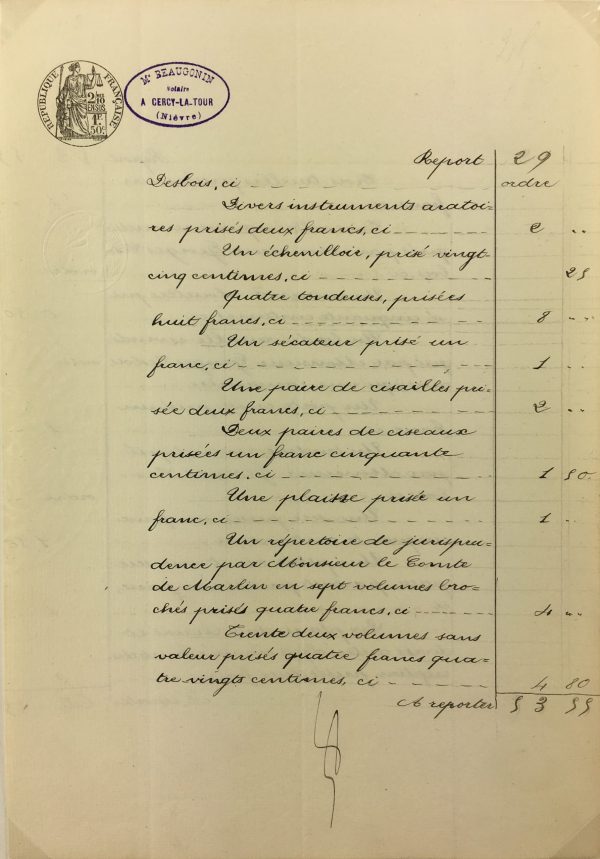 RÉPUBLIQUE FRANÇAISE
2/10 EN SUS
1F 50c
Me BEAUGONIN
Notaire
A CERCY-LA-TOUR
(Nièvre)
Report 29
Desbois, ci ordre
Divers instruments aratoi-
res prisés deux francs, ci 2 "
Un échenilloir, prisé vingt-
cinq centimes, ci 25
Quatre tondeuses, prisées
huit francs, ci 8 "
Un sécateur prisé un
franc, ci 1 "
Une paire de cisailles pri-
sée deux francs, ci 2 "
Deux paires de ciseaux
prisées un franc cinquante
centimes, ci 1 50
Une prisée un
franc, ci 1 "
Un répertoire de jurispru-
dence par Monsieur le Comte
de Marlin en sept volumes bro-
chés prisés quatre francs, ci 4 "
Trente deux volumes sans
valeur prisés quatre francs qua-
tre vingts centimes, ci 4 80
A reporter 53 55